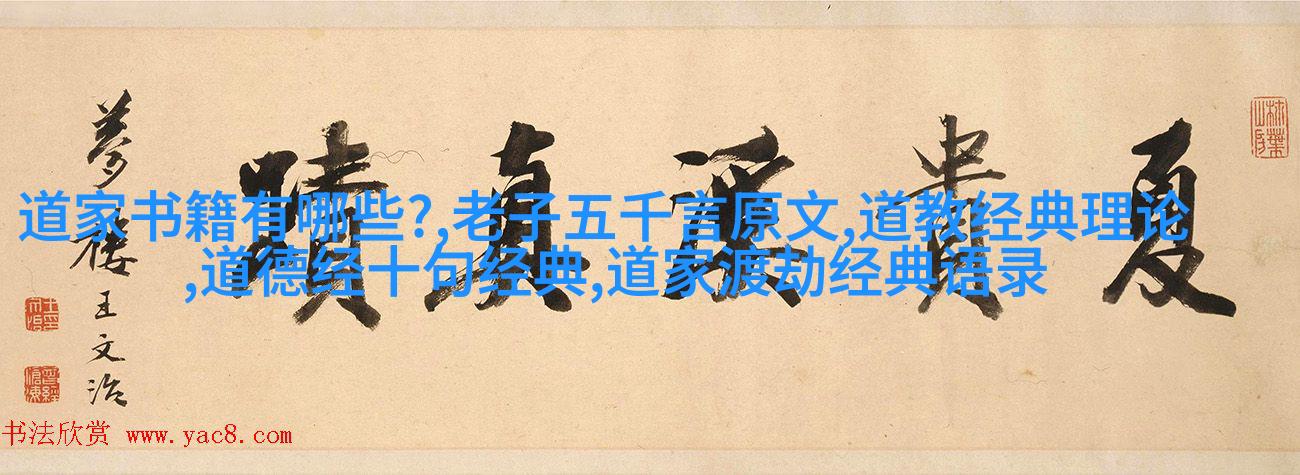 夏貴溪真蹟
夢樓王文治
道家书籍有哪些?,老子五千言原文,道教经典理论
,道德经十句经典,道家渡劫经典语录
书法欣赏 www.yac8.com